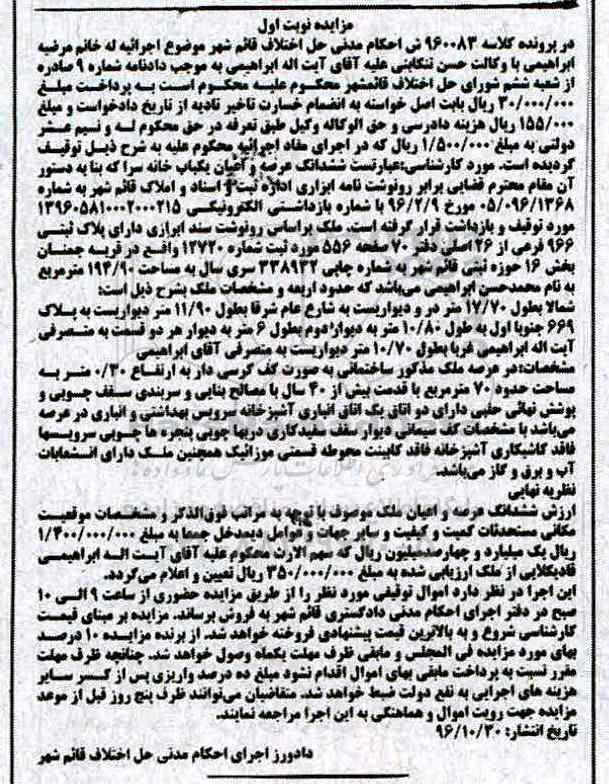 مزایده نوبت اول
در پرونده کلاسه ۹۶۰۰۸۳ ش احکام مدنی حل اختلاف قائم شهر موضوع اجرائیه له خانم مرضیه
ابراهیمی با وکالت حسن تنکابنی علیه آقای آیت اله ابراهیمی به موجب دادنامه شماره ۹ صادره
از شعبه ششم شورای حل اختلاف قائمشهر محکوم علیه محکوم است به پرداخت مبلغ
۳۰/۰۰۰/۰۰۰ ریال بابت اصل خواسته به انضمام خسارت تاخیر تادیه از تاریخ دادخواست و مبلغ
۱۵۵/۰۰۰ ریال هزینه دادرسی و حق الوکاله وکیل طبق تعرفه در حق محکوم له و نیم عشر
دولتی به مبلغ ۱/۵۰۰/۰۰۰ ریال که در اجرای مفاد اجرائیه محکوم علیه به شرح ذیل توقیف
گردیده است. مورد کارشناسی:عبارتست ششدانگ عرصه و اعیان یکباب خانه سرا که بنا به دستور
آن مقام محترم قضایی برابر رونوشت نامه ابزاری اداره ثبت اسناد و املاک قائم شهر به شماره
۰۵/۰۹۶/۱۳۶۸ مورخ ۹۶/۲/۹ با شماره بازداشتی الکترونیکی ۱۳۹۶۰۵۸۱۰۰۰۲۰۰۰۲۱۵
مورد توقیف و بازداشت قرار گرفته است. ملک براساس رونوشت سند ابرازی دارای پلاک ثبتی
۹۶۶ فرعی از ۲۶ اصلی دفتر ۷۰ صفحه ۵۵۶ مورد ثبت شماره ۱۲۷۲۰ واقع در قریه جمنان
بخش ۱۶ حوزه ثبتی قائم شهر به شماره چاپی ۳۳۸۹۳۲ سری سال به مساحت ۱۹۴/۹۰ مترمربع
به نام محمدحسن ابراهیمی می‌باشد که حدود اربعه و مشخصات ملک بشرح ذیل است:
شمالا بطول ۱۷/۷۰ متر در و دیواریست به شارع عام شرقا بطول ۱۱/۹۰ متر دیواریست به پلاک
۶۶۹ جنوبا اول به طول ۱۰/۸۰ متر به دیوار دوم بطول ۶ متر به دیوار هر دو قسمت به متصرفی
آیت اله ابراهیمی غربا بطول ۱۰/۷۰ متر دیواریست به متصرفی آقای ابراهیمی
مشخصات:در عرصه ملک مذکور ساختمانی به صورت کف کرسی دار به ارتفاع ۰/۳۰ متر به
مساحت حدود ۷۰ مترمربع با قدمت بیش از ۴۰ سال با مصالح بنایی و سربندی سقف چوبی و
پوشش نهائی حلبی دارای دو اتاق یک اتاق انباری آشپزخانه سرویس بهداشتی و انباری در عرصه
می‌باشد با مشخصات کف سیمانی دیوار سقف سفیدکاری دربها چوبی پنجره ها چوبی سرویسها
فاقد کاشیکاری آشپزخانه فاقد کابینت محوطه قسمتی موزائیک همچنین ملک دارای انشعابات
آب و برق و گاز می‌باشد.
نظریه نهایی
ارزش ششدانگ عرصه و اعیان ملک موصوف با توجه به مراتب فوق‌الذکر و مشخصات موقعیت
مکانی مستحدثات کمیت و کیفیت و سایر جهات و عوامل ذیمدخل جمعا به مبلغ ۱/۴۰۰/۰۰۰/۰۰۰
ریال یک میلیارد و چهارصدمیلیون ریال که سهم الارث محکوم علیه آقای آیت اله ابراهیمی
قادیکلایی از ملک ارزیابی شده به مبلغ ۳۵۰/۰۰۰/۰۰۰ ریال تعیین و اعلام می‌گردد.
این اجرا در نظر دارد اموال توقیفی مورد نظر را از طریق مزایده حضوری از ساعت ۹ الی ۱۰
صبح در دفتر اجرای احکام مدنی دادگستری قائم شهر به فروش برساند. مزایده بر مبنای قیمت
کارشناسی شروع و به بالاترین قیمت پیشنهادی فروخته خواهد شد. از برنده مزایده ۱۰ درصد
بهای مورد مزایده فی المجلس و مابقی ظرف مهلت یکماه وصول خواهد شد. چنانچه ظرف مهلت
مقرر نسبت به پرداخت مابقی بهای اموال اقدام نشود مبلغ ده درصد واریزی پس از کسر سایر
هزینه های اجرایی به نفع دولت ضبط خواهد شد. متقاضیان می‌توانند ظرف پنج روز قبل از موعد
مزایده جهت رویت اموال و هماهنگی به این اجرا مراجعه نمایند.
تاریخ انتشار: ۹۶/۱۰/۲۰
دادورز اجرای احکام مدنی حل اختلاف قائم شهر